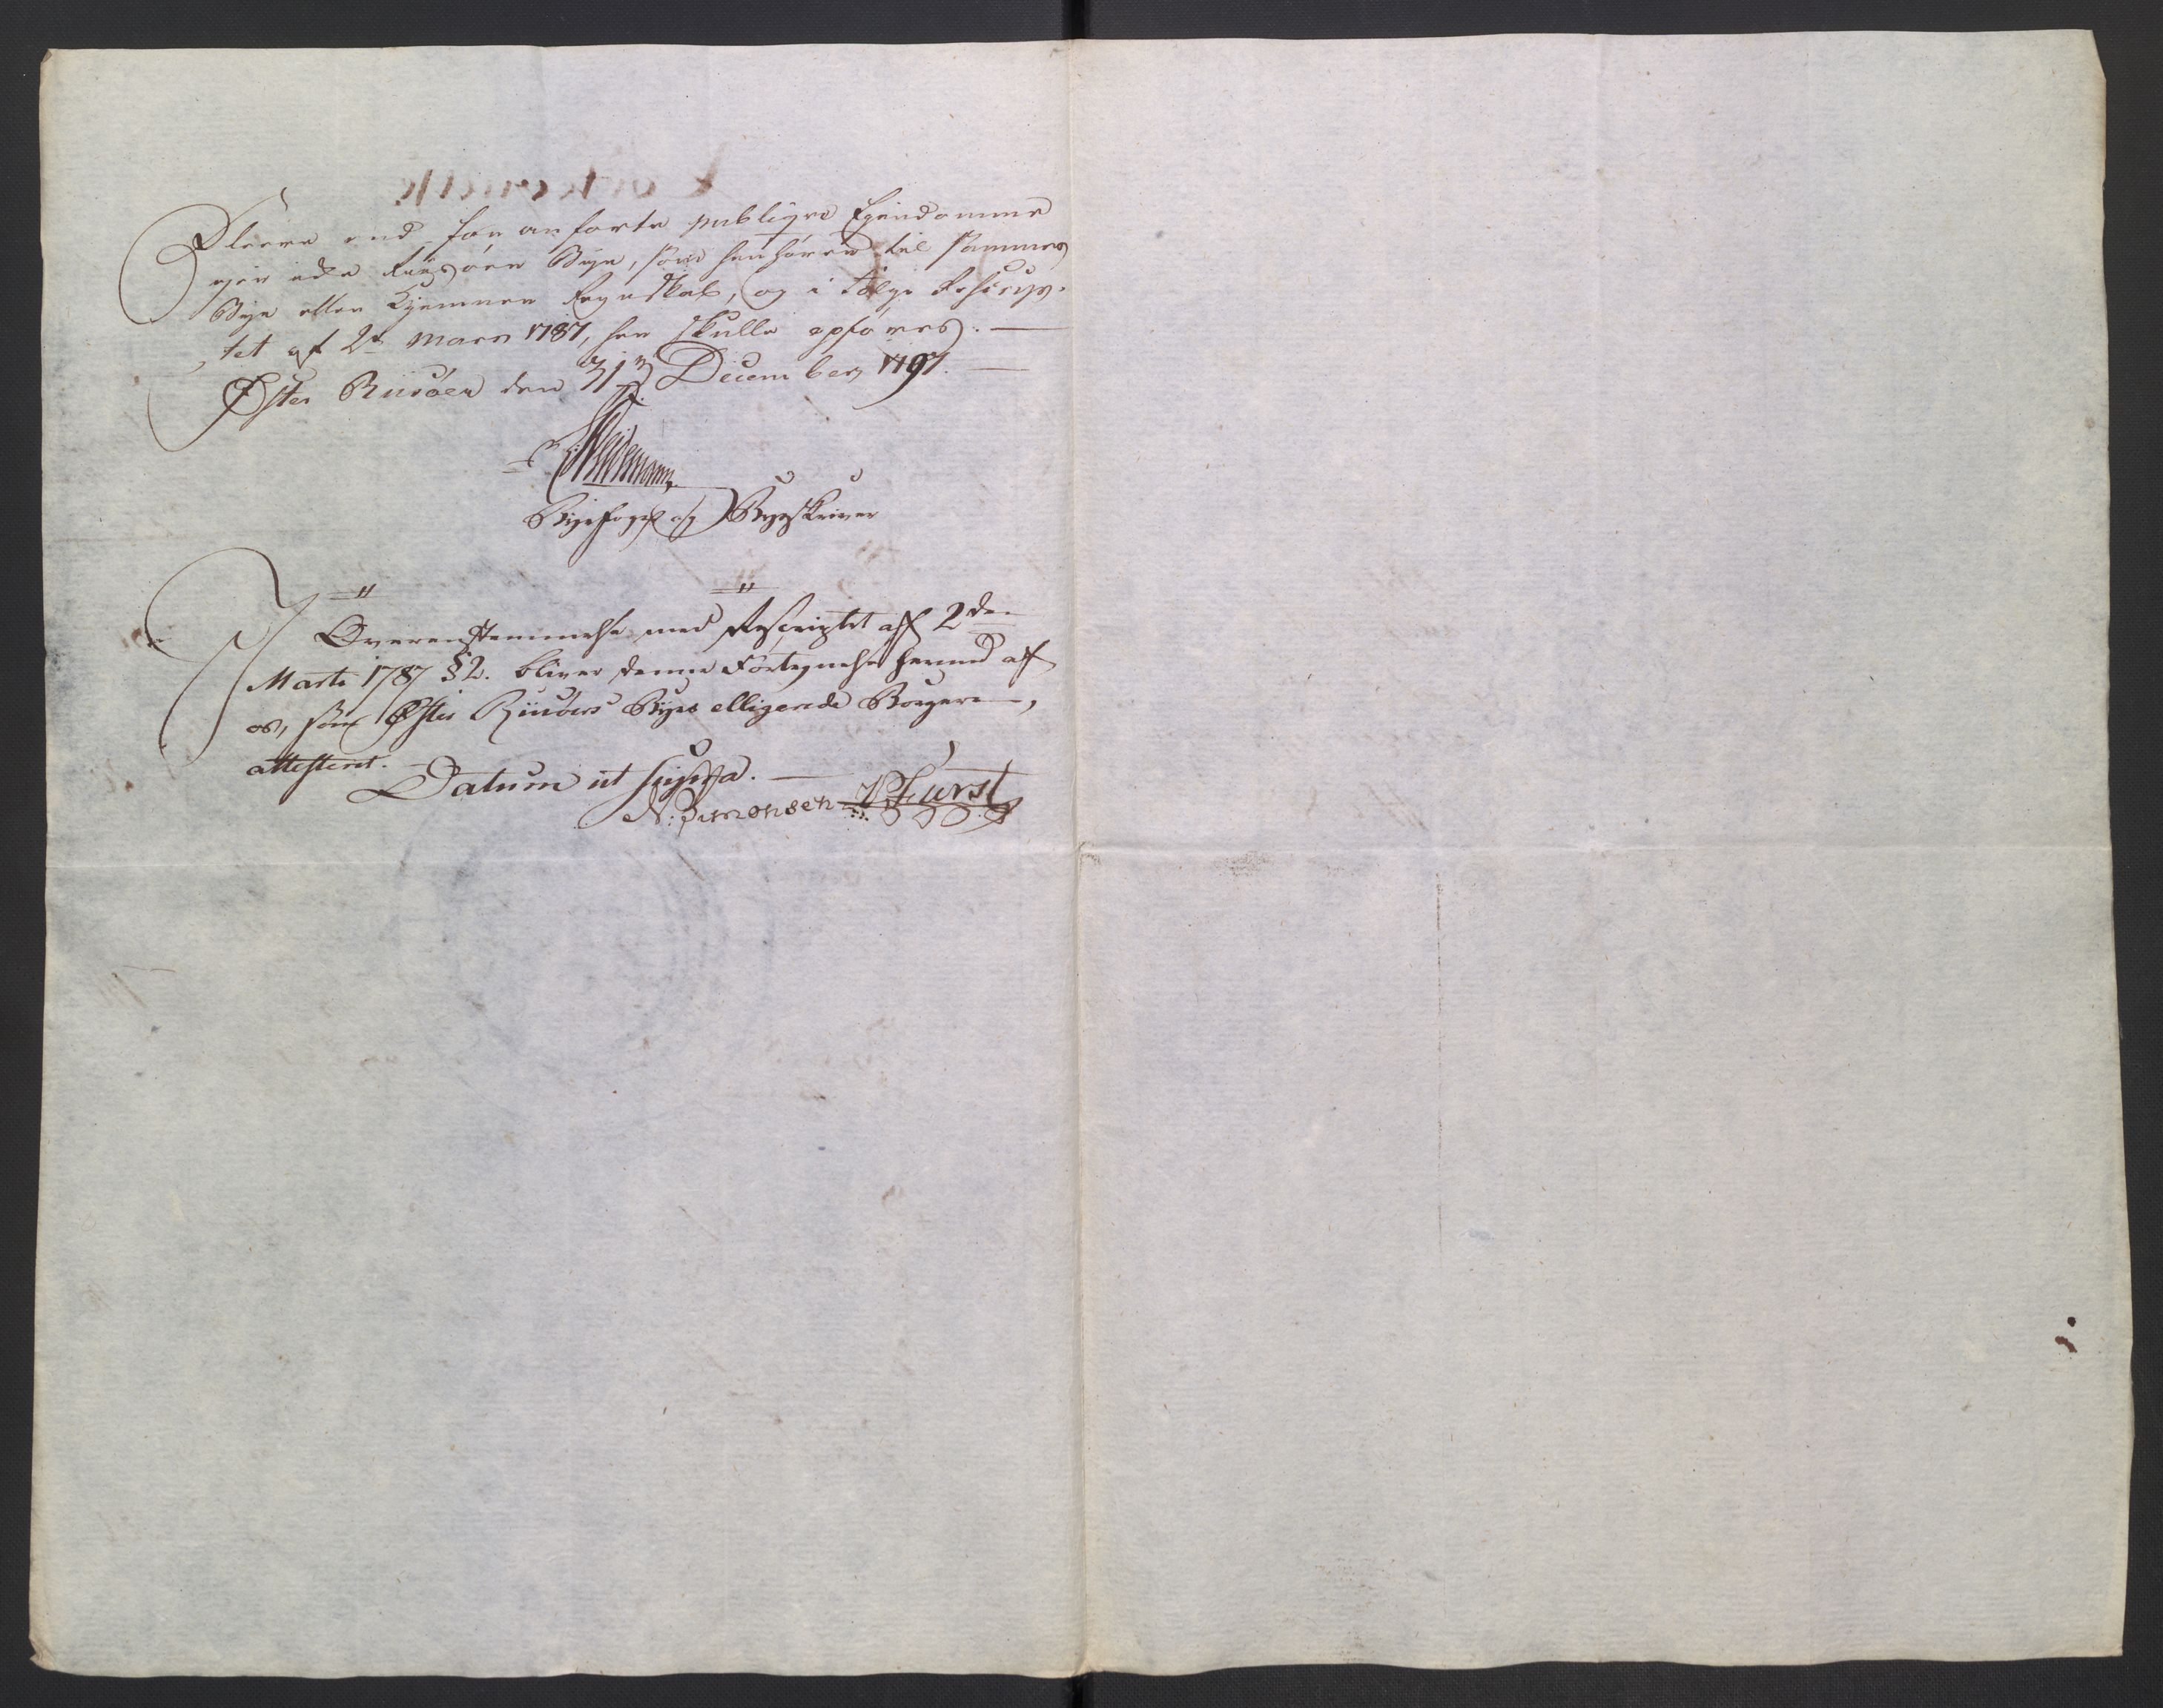 Fleere end foranførte publiqve Ejendomme
ejer icke Riisøer Bÿe, som henhører til sammes
Bÿe eller Kjemner Regnskab, og i Følge Rescrip-
tet af 2d Marts 1787, her skulle opføres. —
Øster Riisøer den 31te December 1797. —
Weidemann
Bÿefoged og Bÿeskriver
I Overensstemmelse med Rescriptet aff 2den
Marti 1787 § 2. bliver denne Fortegnelse hermed aff
os, som Øster Riisöers Byes elligerede Borgere,
attesteret.
Datum ut supra. —
N: Simonsen Fürst